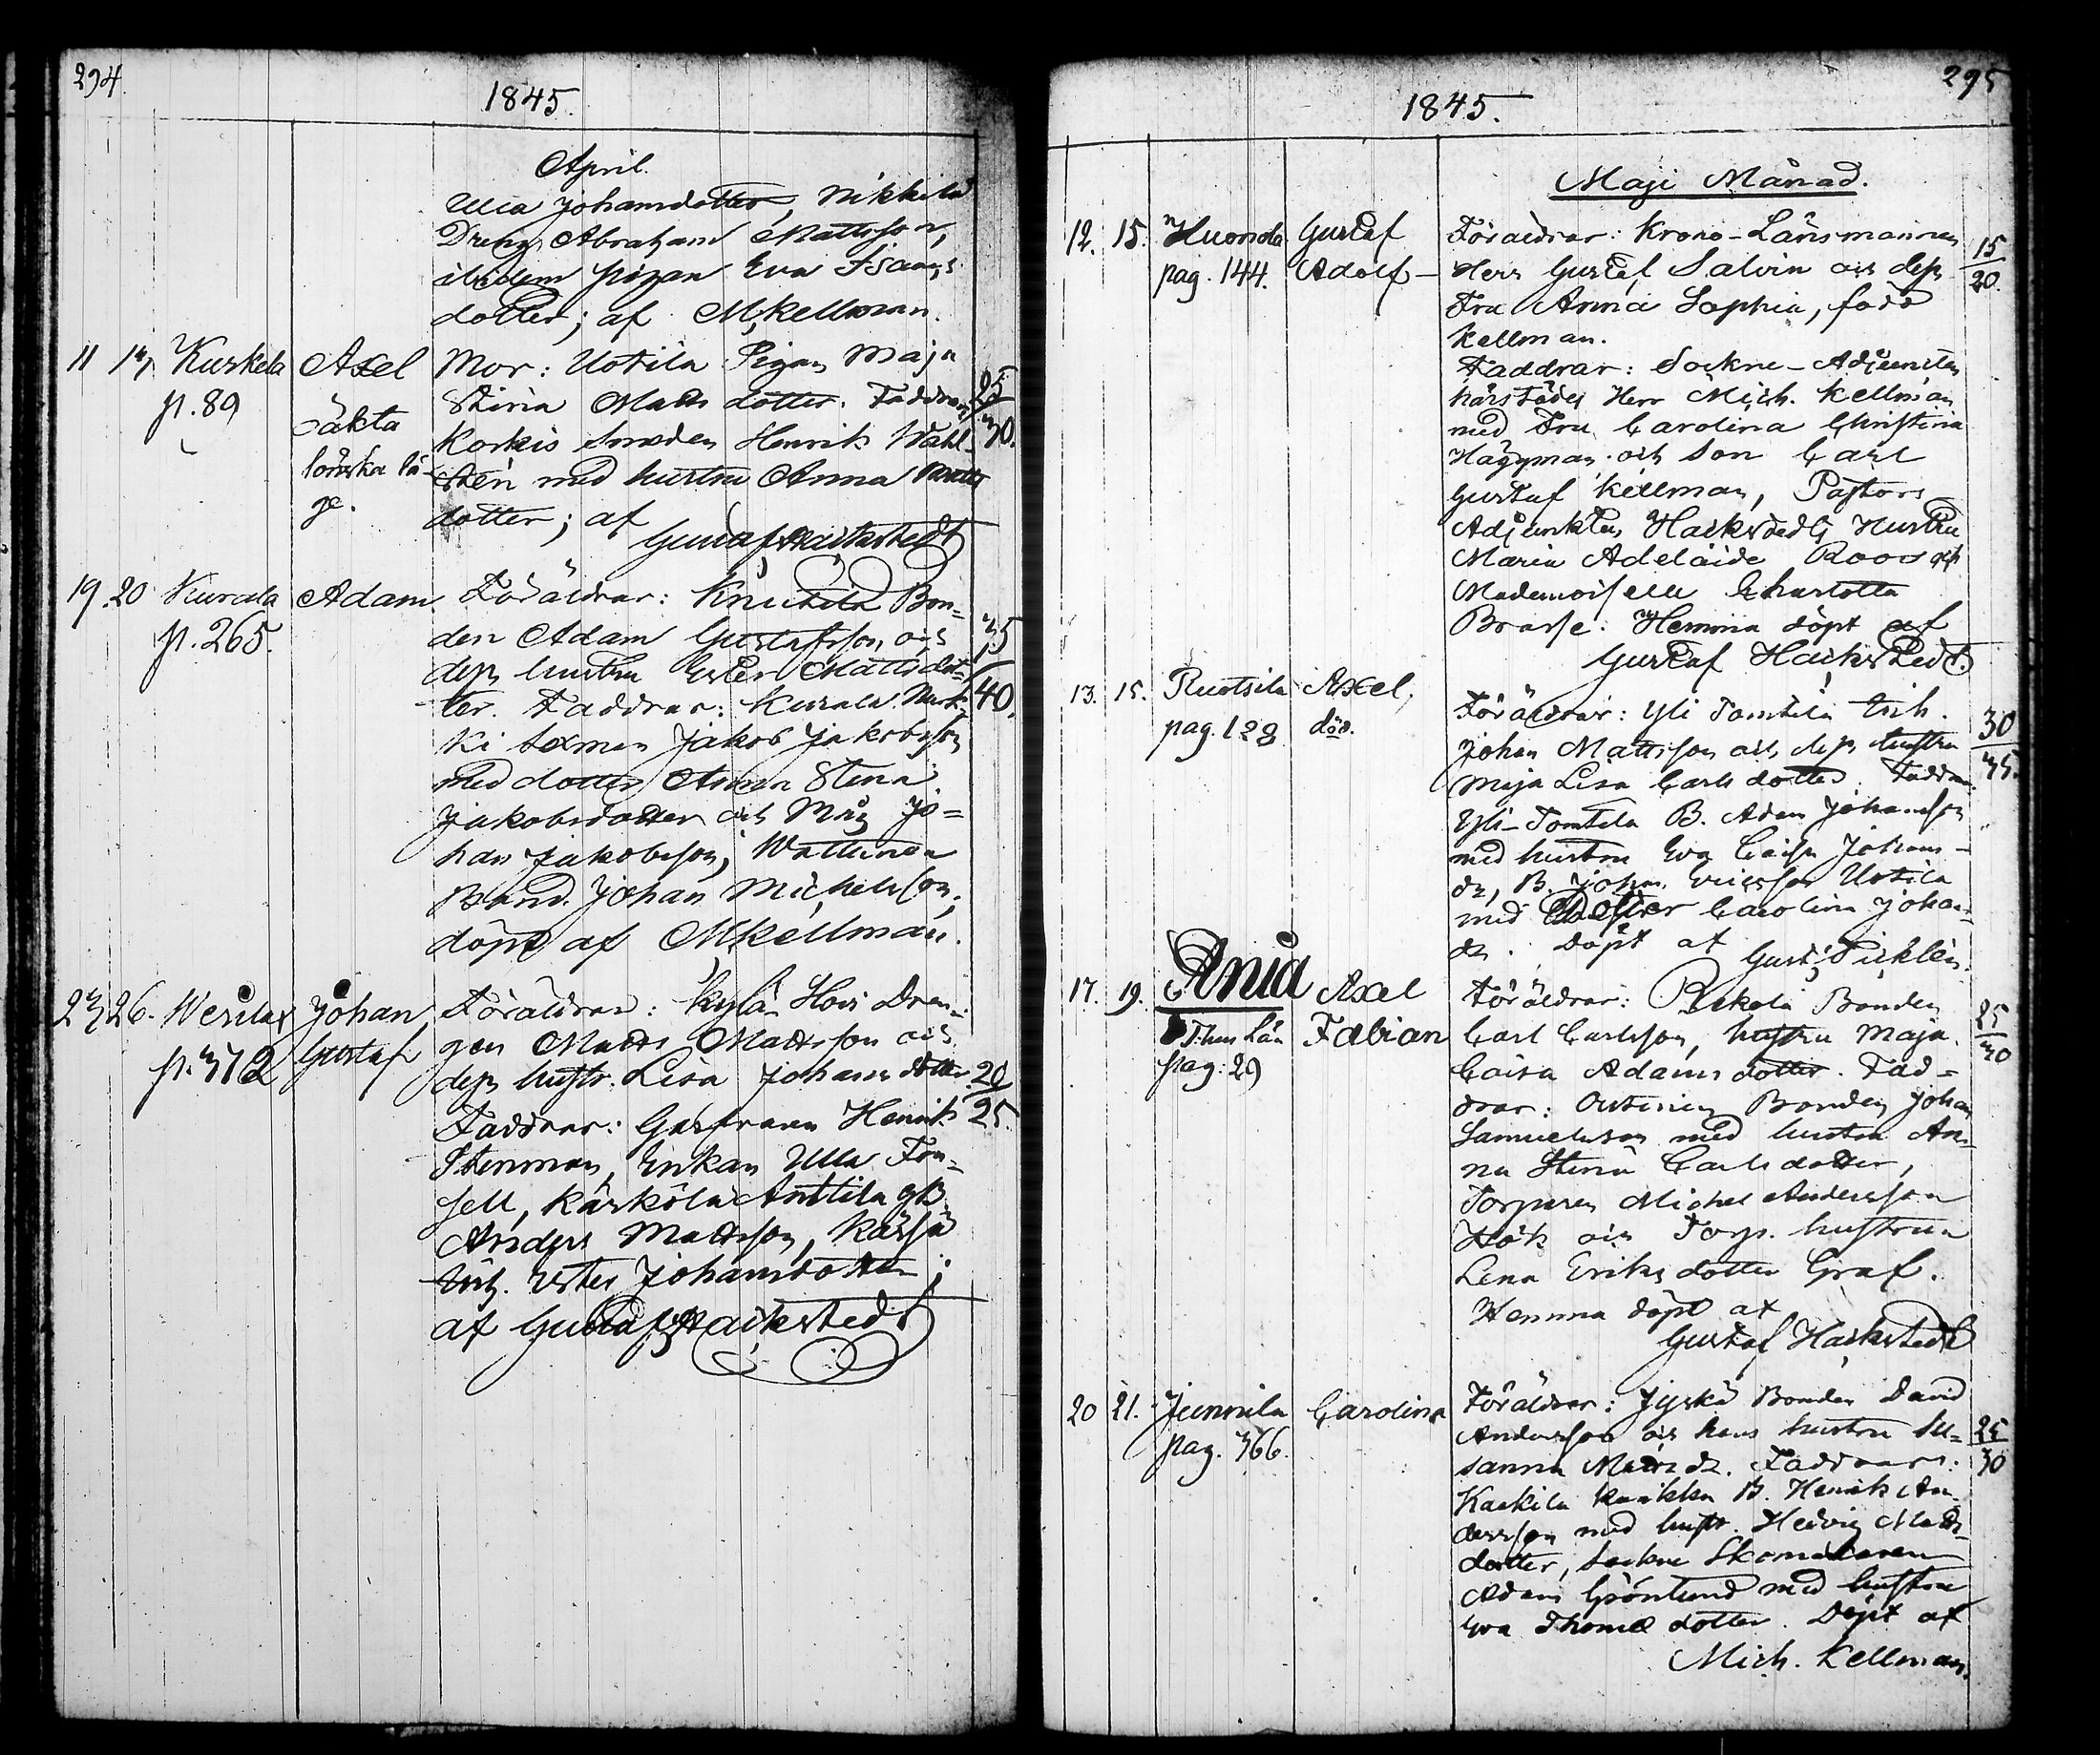 294.
1845.
April.
Ulla Johansdotter, Nikkilä
Dreng Abraham Mattsson,
ibidem pigan Eva Isaacs
dotter; af MKellman.
11 Kurkela Axel Mor: Uotila Pigan Maja
p. 89 Stina Matts dotter. Faddrar 25/30.
oäkta Korkis Smeden Henrik Wahl-
lönska lä- stén med hustru Anna Matts
ge. dotter; af
Gustaf Hackstedt
19. 20 Kurala Adam. Föräldrar: Knutila Bon-
p. 265. den Adam Gustafsson och 35/40.
dess hustru Ester Mattsdot-
ter. Faddrar: Kurala
ki Sexman Jakob Jakobsson
med dotter Anna Stina
Jakobsdotter och Måg Jo=
han Jakobsson,
Bond. Johan Michelsson;
döpt af MKellman.
27 26. Johan Föräldrar: Kylä-Hovi Dren-
p. 372 Gustaf gen Matts Mattsson och
dess hustr. Lisa Johans dotter 20/25.
Faddrar: Garfvaren Henrik
Stenman, Enkan Ulla Fon-
sell, Kärkölä Anttila gB.
Anders Mattsson,
Ester Johansdotter;
af Gustaf Hackstedt
295
1845.
Maji Månad.
12. 15. Huonola Gustaf Föräldrar: Krono-Länsmannen 15/20.
pag. 144. Adolf – Herr Gustaf Salvin och dess
Fru Anna Sophia, född
Kellman.
Faddrar: Sockne-Adjuncten
härstädes Herr Mich. Kellman
med Fru Carolina Christina
Häggman och Son Carl
Gustaf Kellman, Pastors
Adjunkten Hackstedts Hustru
Maria Adelaide Roos och
Mademoiselle Charlotta
Brasse. Hemma döpt af
Gustaf Hackstedt.
13. 15. Ruotsila Axel, Föräldrar: Yli Tomtila Inh. 30/35.
pag. 188 död. Johan Mattsson och dess hustru
Maja Lisa Carls dotter. Faddrar
Yli-Tomtila B. Adam Johansson
med hustru Eva Caisa Johans-
dr, B. Johan Ericsson Uotila
med Carolina Johans
dr. Döpt af
17. 19. Ania Axel Föräldrar: Bonden 25/30
Thus Län Fabian Carl Carlsson, hustru Maja
pag: 29 Caisa Adams dotter. Fad=
drar: Bonden Johan
Samuelsson med hustru An-
na Stina Carlsdotter,
Torparen Michel Andersson
Hök och Torp. hustrun
Lena Eriks dotter Graf.
Hemma döpt af
Gustaf Hackstedt
20 21. Junnila Carolina Föräldrar: Jyskä Bonden David
pag. 366. Andersson och hans hustru Su= 25/30
sanna Matts dr. Faddrar:
Kaukila B. Henrik An-
dersson med hustr. Hedvig Matts
dotter, Sockne Skomakaren
Adam Grönlund med hustru
Eva Thomæ dotter. Döpt af
Mich. Kellman.